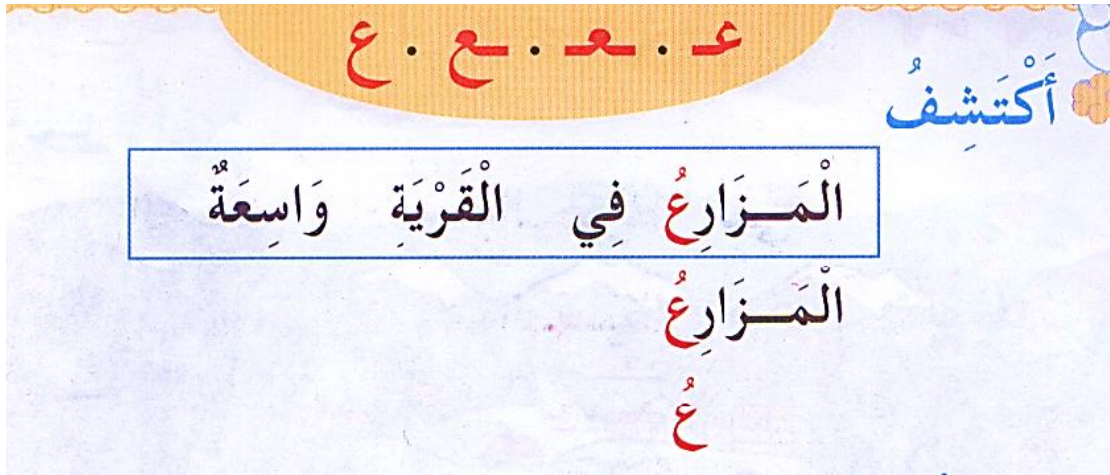 عـ . ـعـ . ـع . ع
أَكْتَشِفُ
الْمَــزَارِعُ فِي الْقَرْيَةِ وَاسِعَةٌ
الْمَــزَارِعُ
عُ